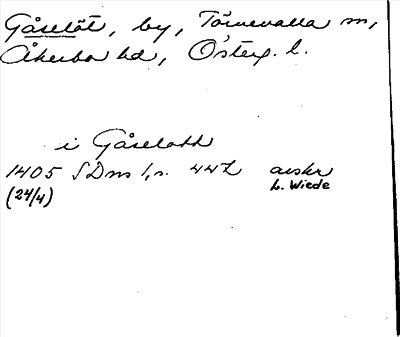 Gåselöt, by, Törnevalla sn,
Åkerbo hd, Österg. l.
i Gåseloth
1405 SDns 1, s. 442 avskr
(24/4) L. Wiede